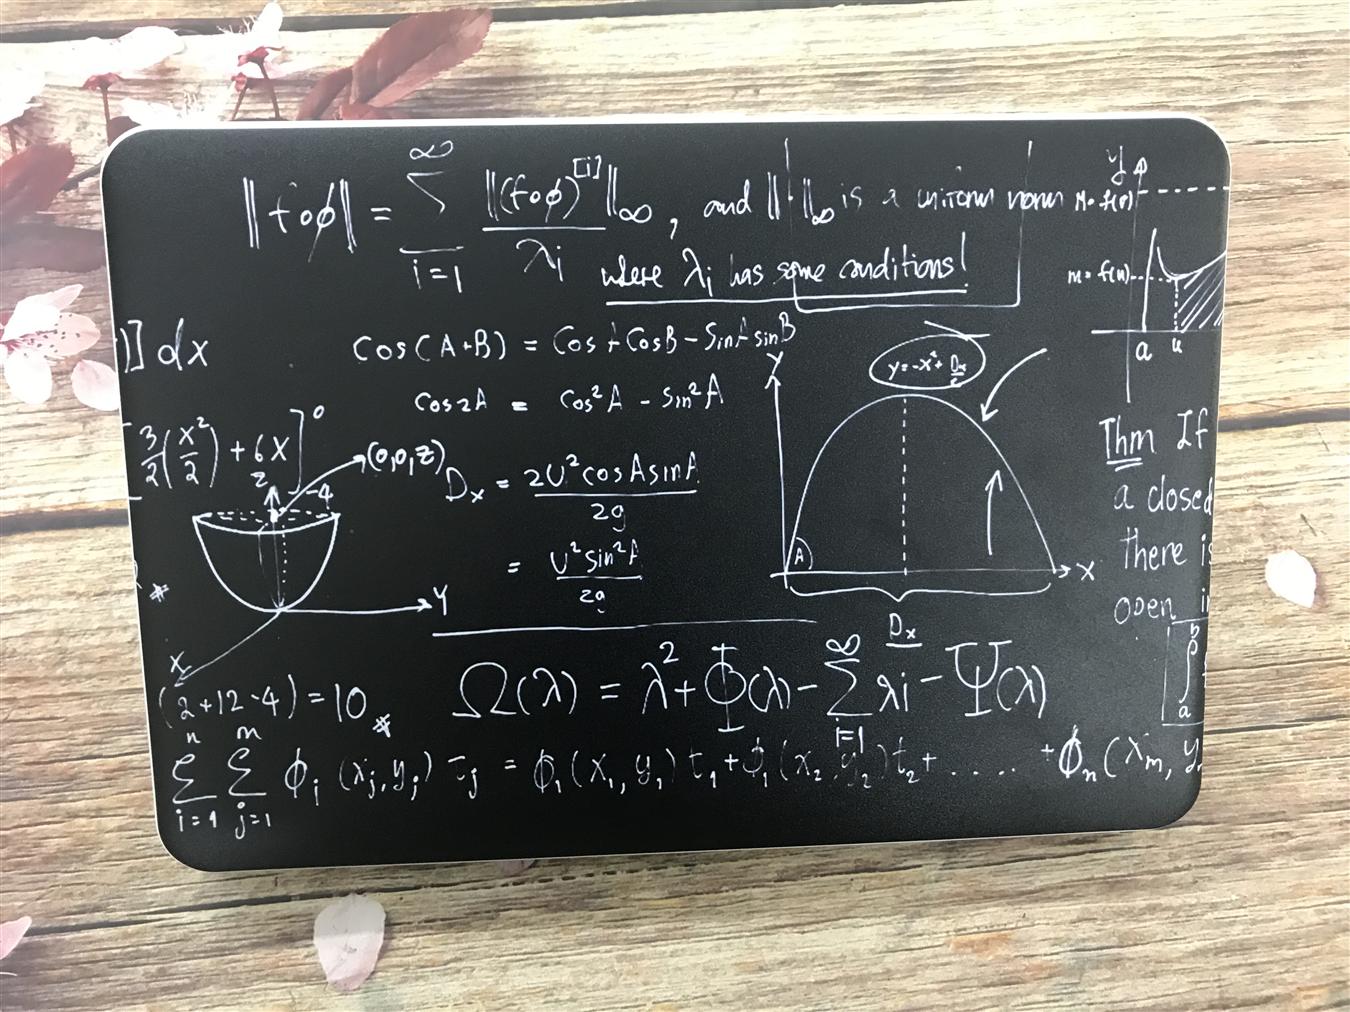 ‖foφ‖ = ∞ Σ i=1 ‖(foφ)^[i]‖∞ / λi , and ‖·‖∞ is a uniform norm
where λi has some conditions!
y
M = f(v)
m = f(u)
a u
)] dx
Cos(A+B) = CosA CosB - SinA sinB
Cos2A = Cos²A - Sin²A
y = -x² + Dx/2
Y
X
A
Dx
[3/2(x²/2) + 6x]⁰ -4
z
(0,0,z)
Y
x
Dx = 2U²cosAsinA / 2g
= U²sin²A / 2g
Thm If
a closed
there is
open in
b ∫ a
*
(2+12-4) = 10 *
Ω(λ) = λ² + Φ(λ) - ∞ Σ i=1 λi - Ψ(λ)
n Σ i=1 m Σ j=1 φi (xj, yj) τj = φ1 (x1, y1) t1 + φ1 (x2, y2) t2 + ..... + φn (xm, y